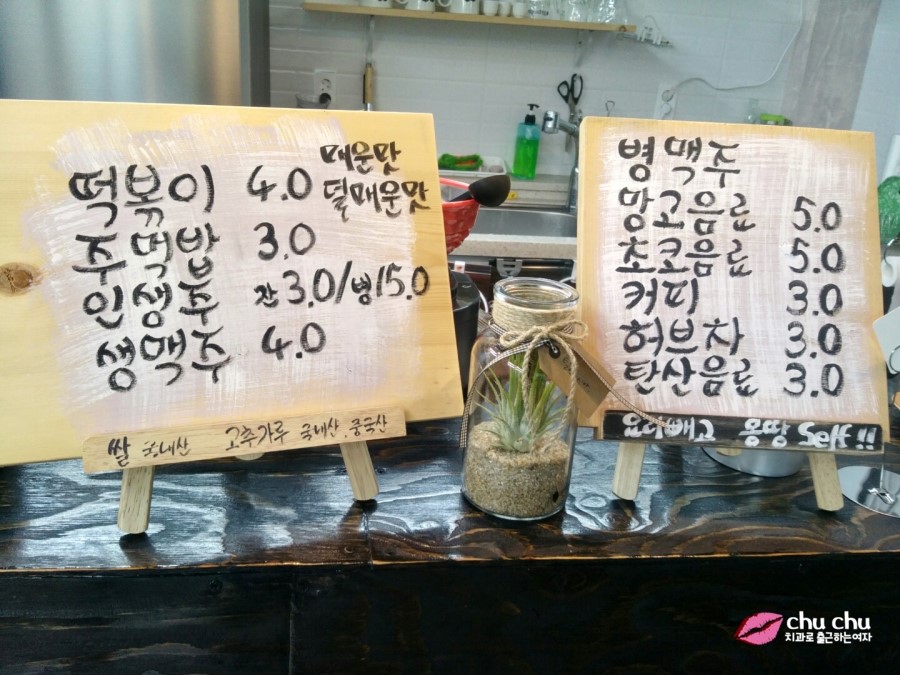 떡볶이 4.0 매운맛
덜매운맛
주먹밥 3.0
인생주 잔3.0/병15.0
생맥주 4.0
쌀 국내산 고추가루 국내산, 중국산
병맥주
망고음료 5.0
초코음료 5.0
커피 3.0
허브차 3.0
탄산음료 3.0
요리빼고 몽땅 Self!!
chu chu
치과로 출근하는여자